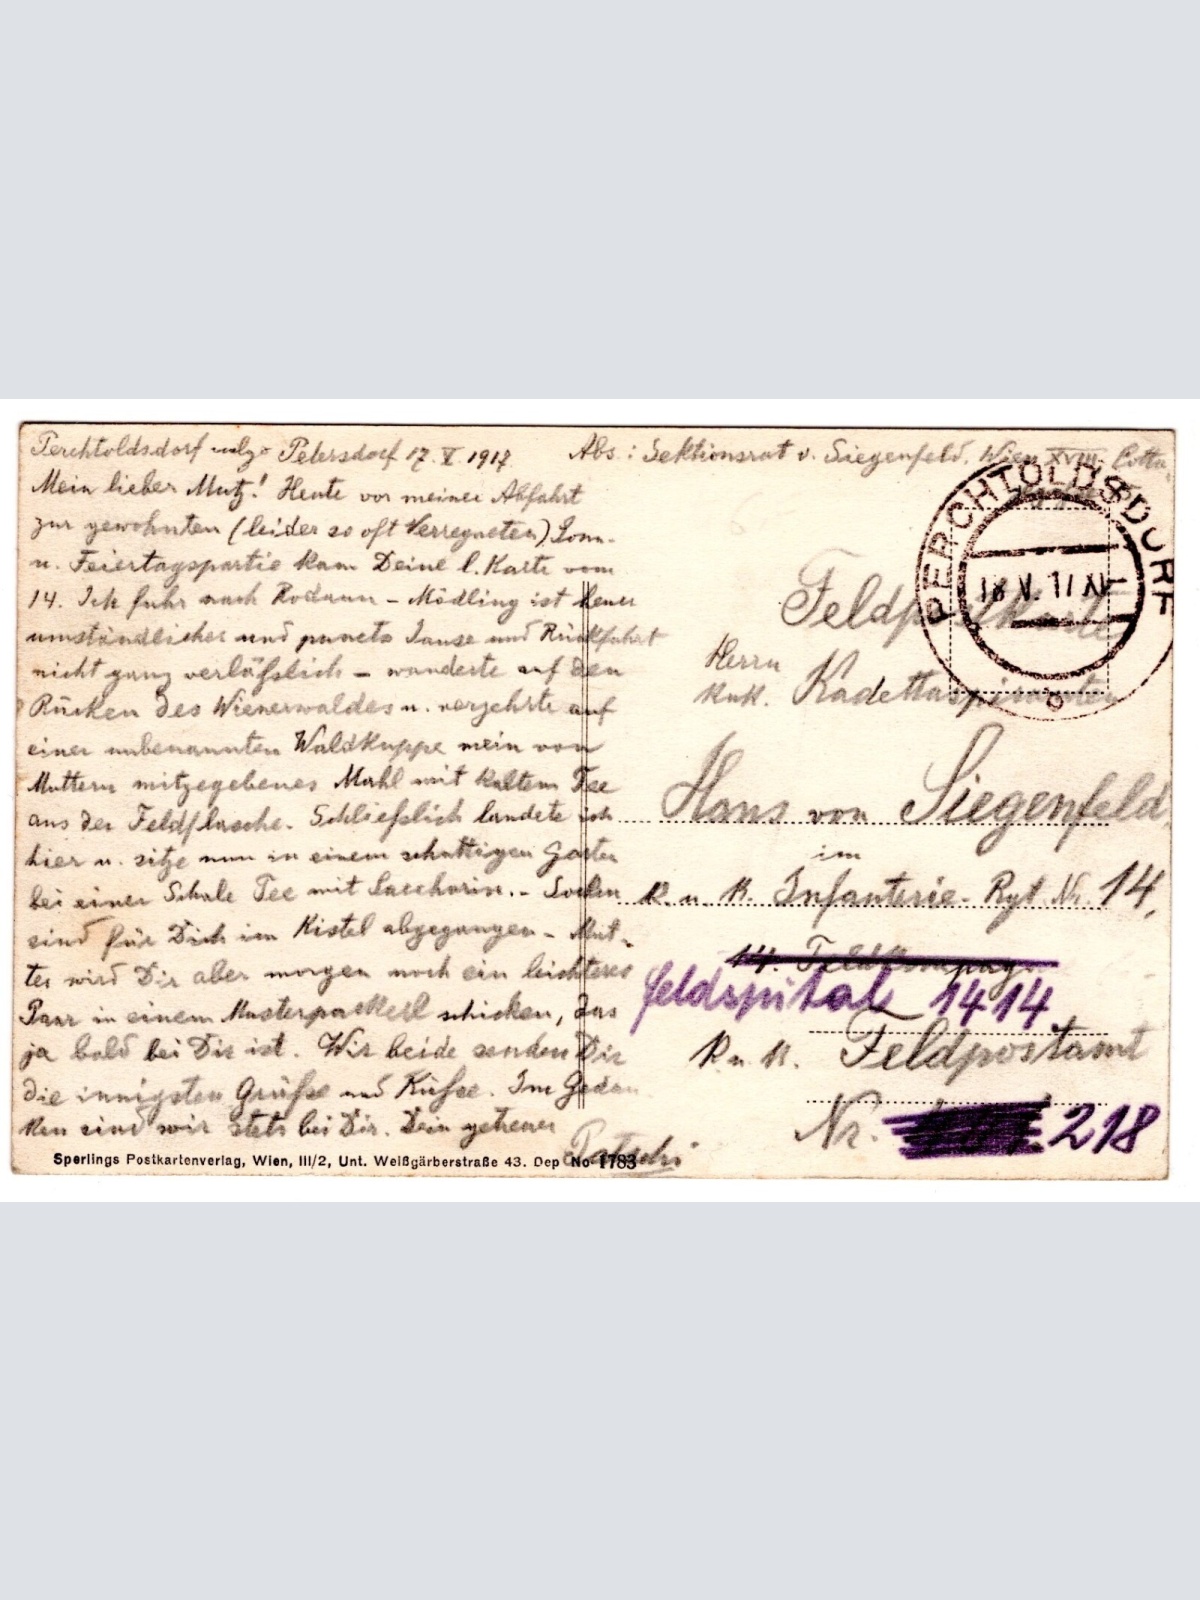 Perchtoldsdorf vulgo Petersdorf 17. V. 1917
Mein lieber Mutz! Heute vor meiner Abfahrt
zur gewohnten (leider so oft verregneten) Sonn-
u. Feiertagspartie kam Deine l. Karte vom
14. Ich fuhr nach Rodaun – Mödling ist heuer
umständlicher und puncto Jause und Rückfahrt
nicht ganz verläßlich – wanderte auf den
Rücken des Wienerwaldes u. verzehrte auf
einer unbenannten Waldkuppe mein von
Muttern mitgegebenes Mahl mit kaltem Tee
aus der Feldflasche. Schließlich landete ich
hier u. sitze nun in einem schattigen Garten
bei einer Schale Tee mit Saccharin. – Socken
sind für Dich im Kistel abgegangen – Mut-
ter wird Dir aber morgen noch ein leichteres
Paar in einem Musterpackerl schicken, das
ja bald bei Dir ist. Wir beide senden Dir
die innigsten Grüße und Küsse. Im Gedan
ken sind wir stets bei Dir. Dein getreuer
Patschi
Sperlings Postkartenverlag, Wien, III/2, Unt. Weißgärberstraße 43. Dep No 1783
Abs.: Sektionsrat v. Siegenfeld, Wien XVIII. Cotta-
PERCHTOLDSDORF
18 V. 17 XI
b
Feldpostkarte
Herrn
k.u.k. Kadettaspiranten
Hans von Siegenfeld,
im
k. u. k. Infanterie-Rgt. Nr. 14,
14. Feldkompagn
feldspital 1414
k. u. k. Feldpostamt
Nr. 218